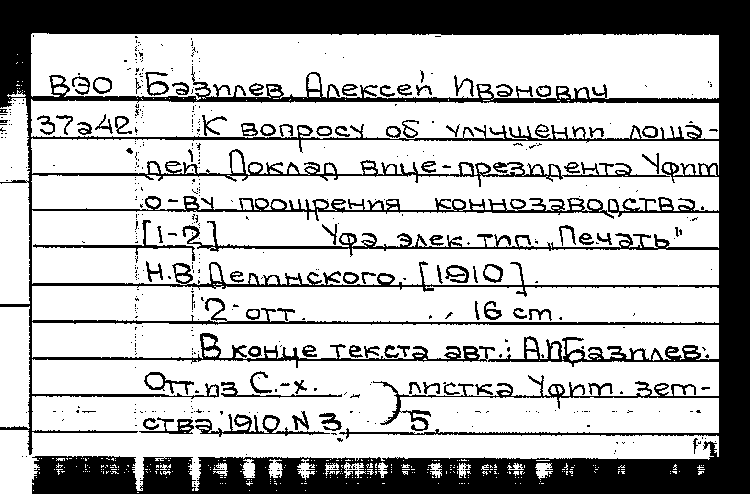 ВЭО Базилев, Алексей Иванович
37а42. К вопросу об улучшении лоша-
дей. Доклад вице-президента Уфит
о-ву поощрения коннозаводства.
[1-2] Уфа, элек. тип. „Печать"
Н.В. Делинского, [1910].
2 отт. 16 ст.
В конце текста авт.: А.И.Базилев.
Отт. из С.-х. листка Уфит. зет-
ства, 1910, N 3, 5.